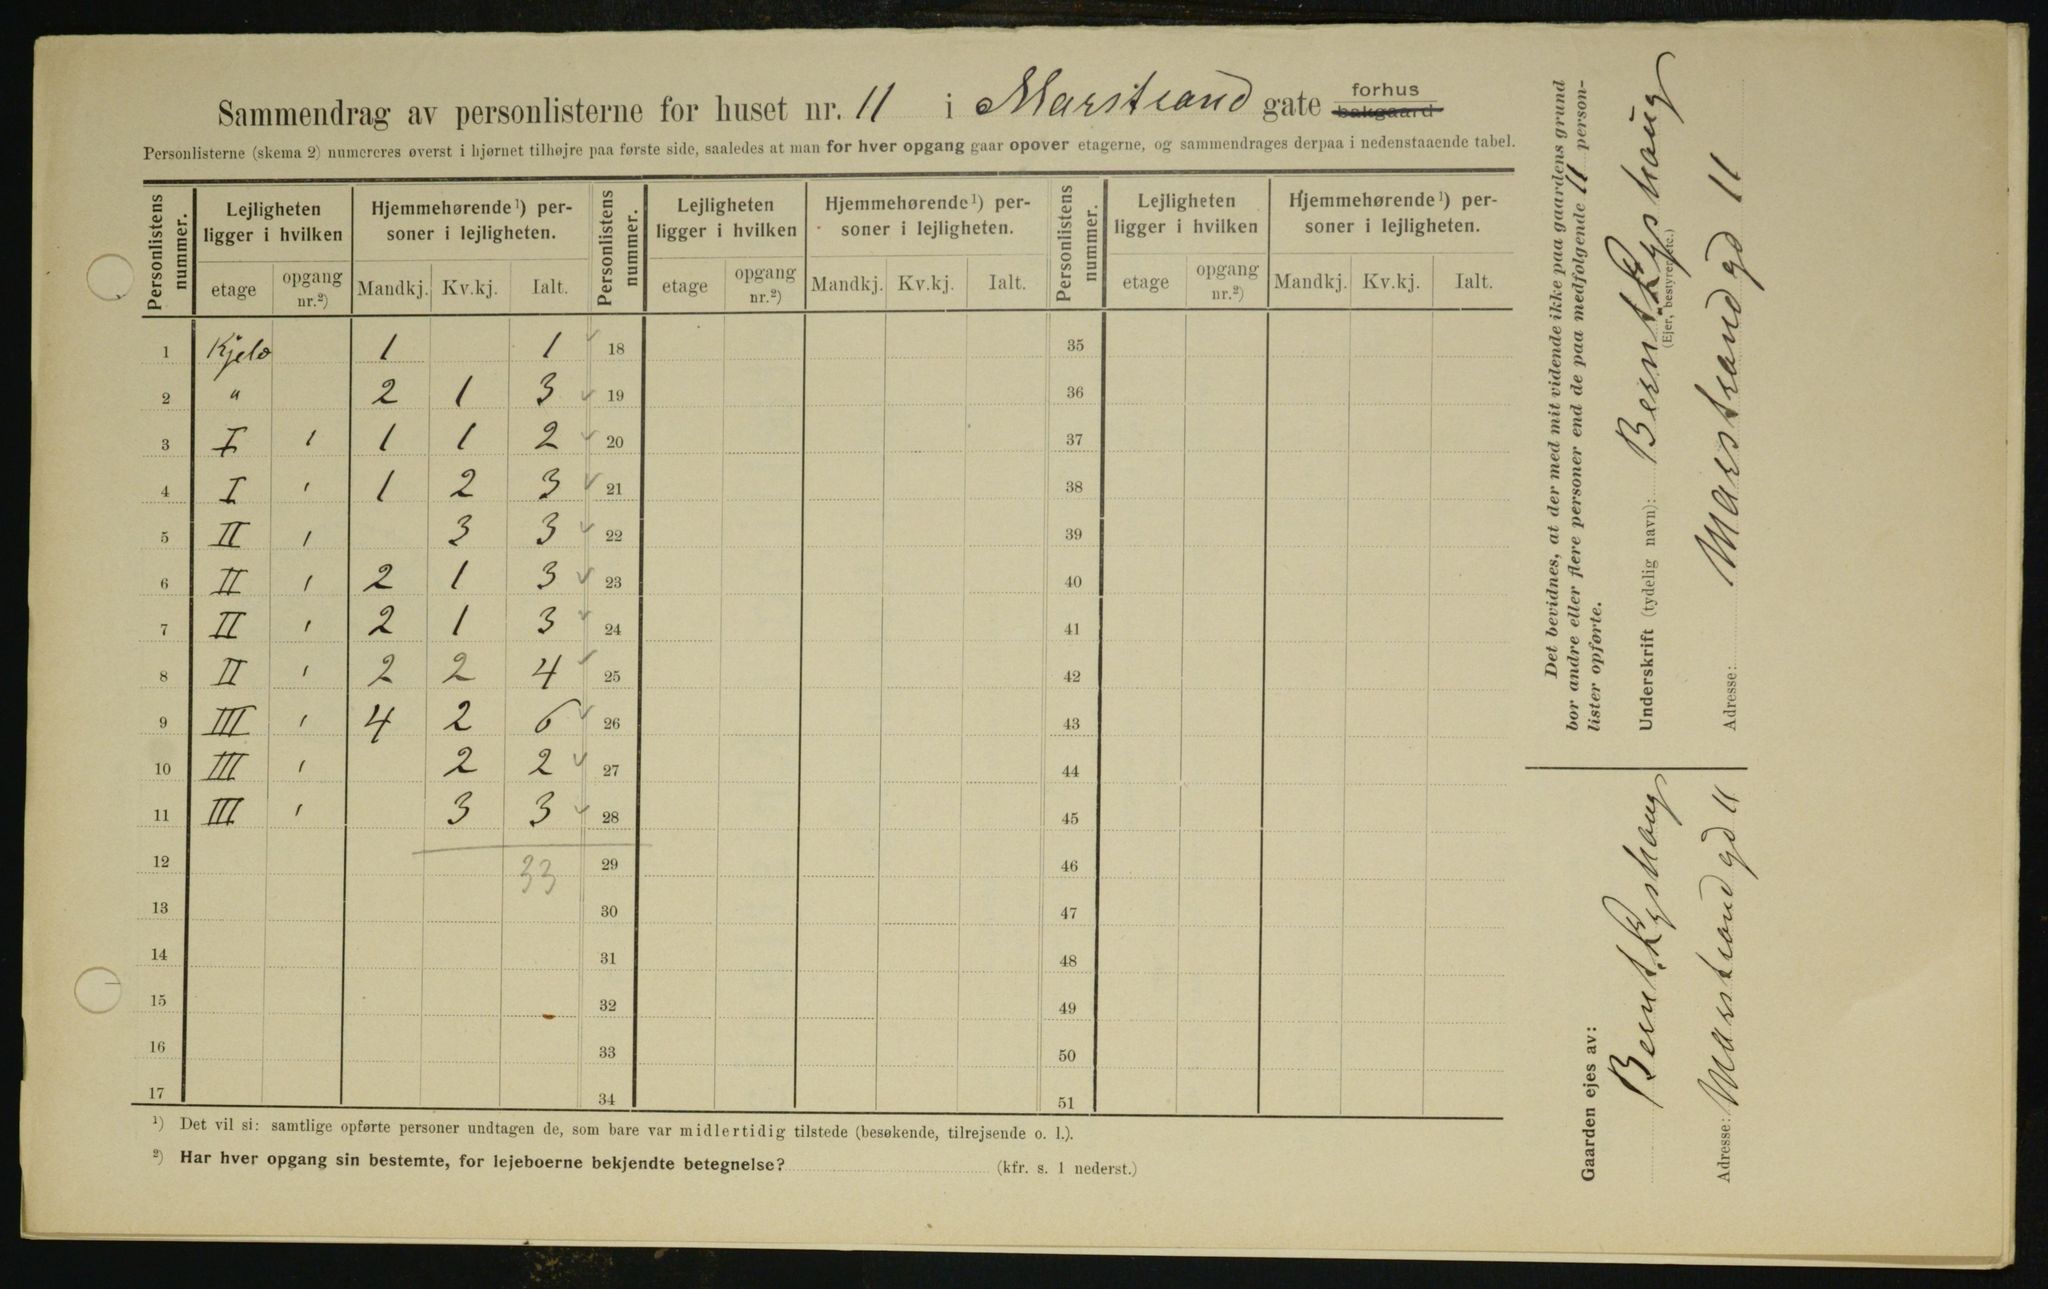 Sammendrag av personlisterne for huset nr. 11 i Marstrand gate forhus bakgaard
Personlisterne (skema 2) numereres øverst i hjørnet tilhøjre paa første side, saaledes at man for hver opgang gaar opover etagerne, og sammendrages derpaa i nedenstaaende tabel.
Personlistens nummer. Lejligheten ligger i hvilken Hjemmehørende¹) personer i lejligheten. Personlistens nummer. Lejligheten ligger i hvilken Hjemmehørende¹) personer i lejligheten. Personlistens nummer. Lejligheten ligger i hvilken Hjemmehørende¹) personer i lejligheten.
etage opgang nr.²) Mandkj. Kv.kj. Ialt. etage opgang nr.²) Mandkj. Kv.kj. Ialt. etage opgang nr.²) Mandkj. Kv.kj. Ialt.
1 Kjeld 1 1 18 35
2 " 2 1 3 19 36
3 I ' 1 1 2 20 37
4 I ' 1 2 3 21 38
5 II ' 3 3 22 39
6 II ' 2 1 3 23 40
7 II ' 2 1 3 24 41
8 II ' 2 2 4 25 42
9 III ' 4 2 6 26 43
10 III ' 2 2 27 44
11 III ' 3 3 28 45
12 33 29 46
13 30 47
14 31 48
15 32 49
16 33 50
17 34 51
¹) Det vil si: samtlige opførte personer undtagen de, som bare var midlertidig tilstede (besøkende, tilrejsende o. l.).
²) Har hver opgang sin bestemte, for lejeboerne bekjendte betegnelse? (kfr. s. 1 nederst.)
Det bevidnes, at der med mit vidende ikke paa gaardens grund
bor andre eller flere personer end de paa medfølgende 11 person-
lister opførte.
Underskrift (tydelig navn): Bernt
(Ejer, bestyrer etc.)
Adresse: Marstrand gd 11
Gaarden ejes av:
Bernt
Adresse: Marstrand gd 11